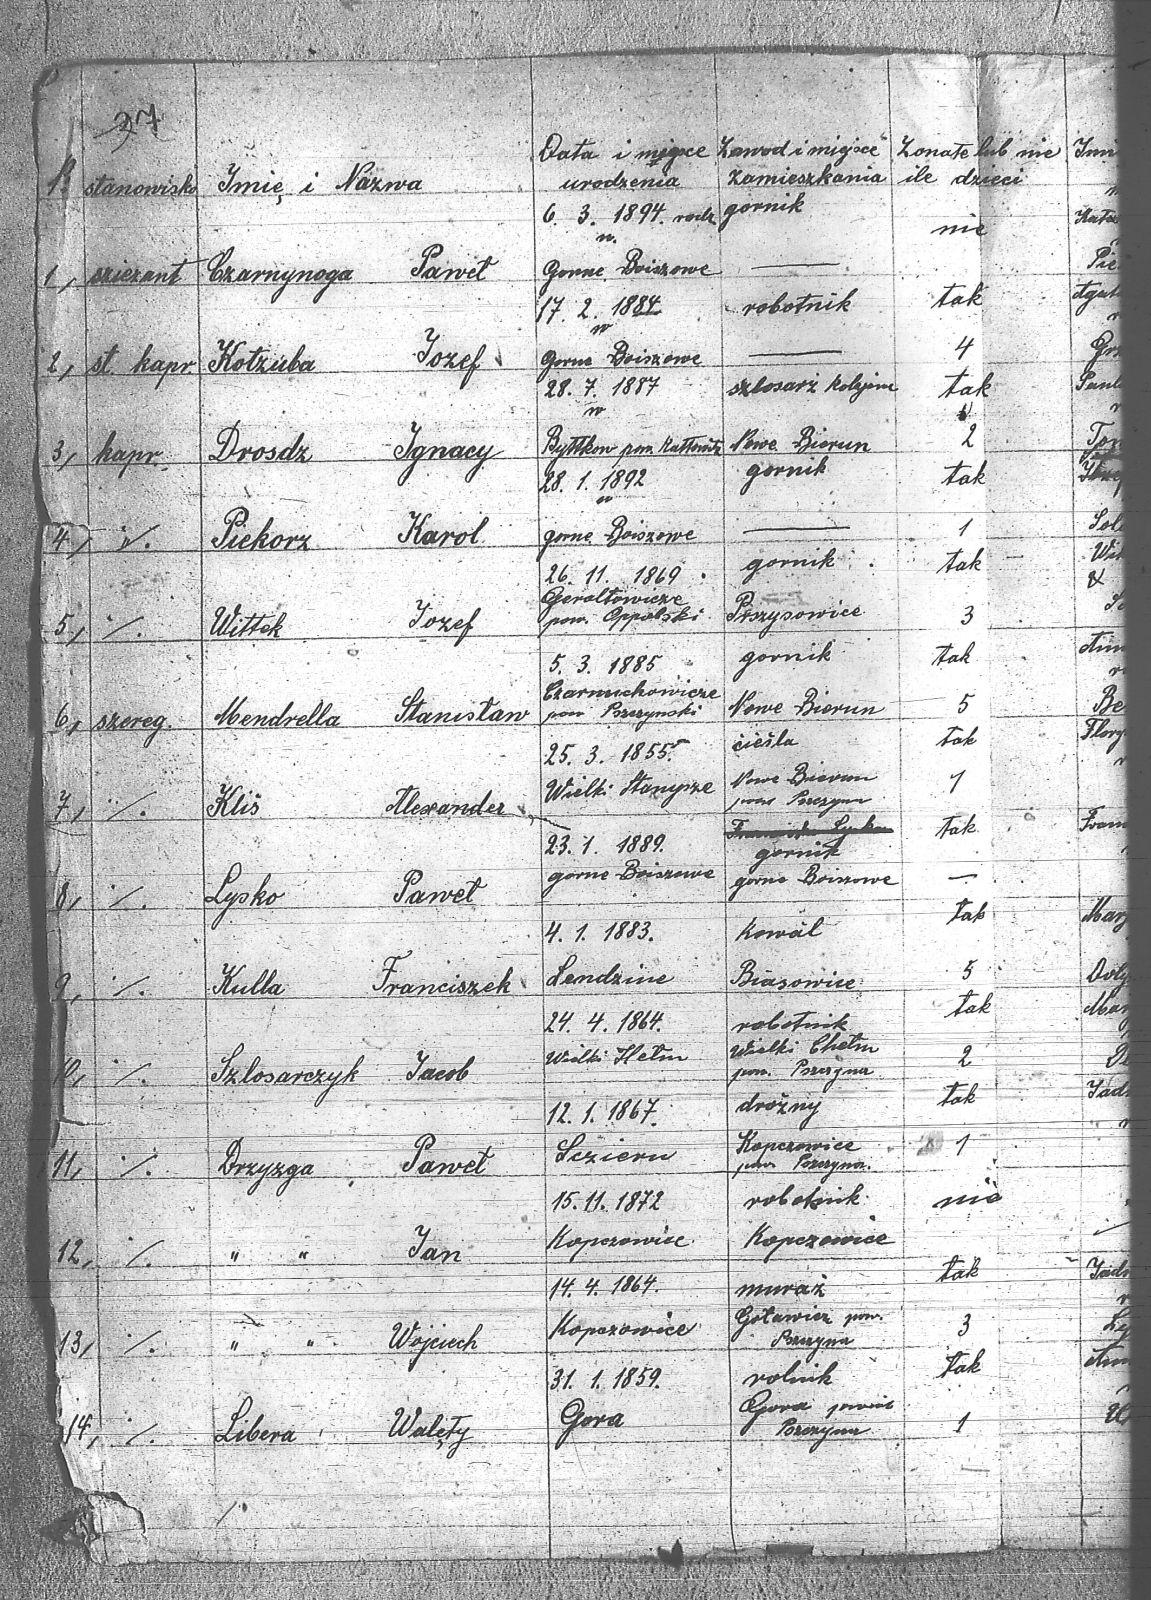 37
Data i miejsce Zawod i miejsce Zonate lub nie
stanowisko Imię i Nazwa urodzenia Zamieszkania ile dzieci
6. 3. 1894 gornik nie
1, Czarnynoga Paweł Gorne Boiszowe —
17. 2. 1884 robotnik tak
w
2, st. kapr Kotzuba Jozef Gorne Boiszowe — 4
28. 7. 1887 szlosarż tak
w
3, kapr. Drosdz Ignacy Byttkow pow. Kattowitz Nowe Bierun 2
28. 1. 1892 gornik tak
w
4, " /. Piekorz Karol gorne Boiszowe — 1
26. 11. 1869 gornik tak
Geraltowicze
5, " /. Wittek Jozef pow. Oppolski 3
5. 3. 1885 gornik tak
6, szereg. Mendrella Stanisław pow Pszczynski Nowe Bierun 5
25. 3. 1855 cieśla tak
Wielki Nowe Bierun 1
7, " /. Kliś Alexander pow Pszczyna
23. 1. 1889. gornik tak
8, " /. Lysko Paweł gorne Boiszowe gorne Boiszowe —
4. 1. 1883. kowal tak
9, " /. Kulla Franciszek Lendzine Biasowice 5
24. 4. 1864. robotnik tak
10, " /. Szlosarczyk Jacob Wielki Hełm Wielki Chełm 2
pow. Pszczyna
12. 1. 1867. drożny tak
11, " /. Drzyzga Paweł Sczieru Kopczowice 1
pow Pszczyna.
15. 11. 1872 robotnik nie
12, " /. " " Jan Kopczowice Kopczowice
14. 4. 1864. muraż tak
13, " /. " " Wojciech Kopczowice Goławicz pow. 3
Pszczyna
31. 1. 1859. rolnik tak
14, " /. Libera Walęty Gora Gora powiat 1
Pszczyna